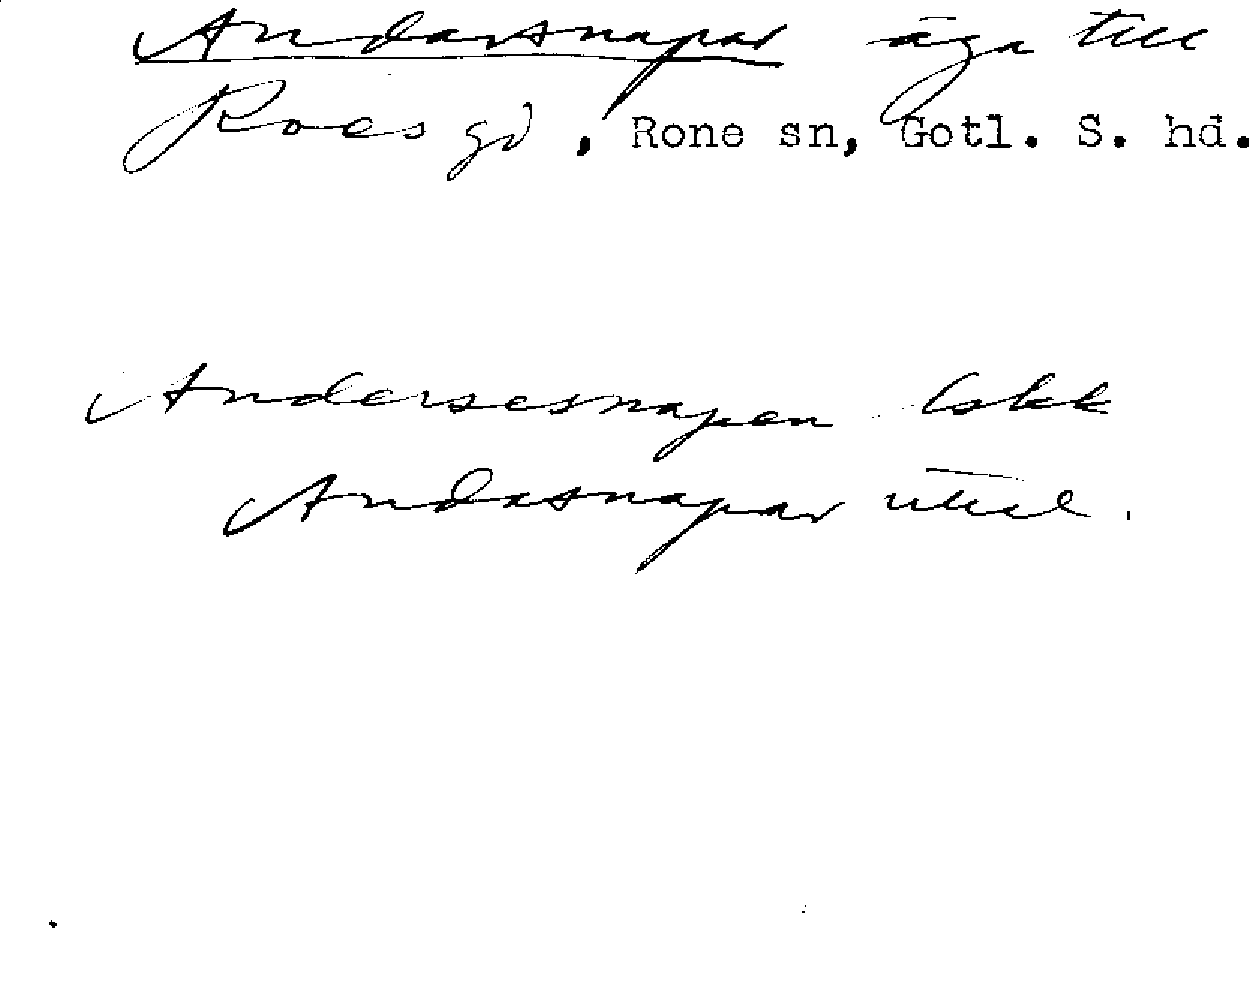 Andarsnapar äga till
Roes gd, Rone sn, Gotl. S. hd.
Andersesnapen Lskk
Andasnapar uttal.